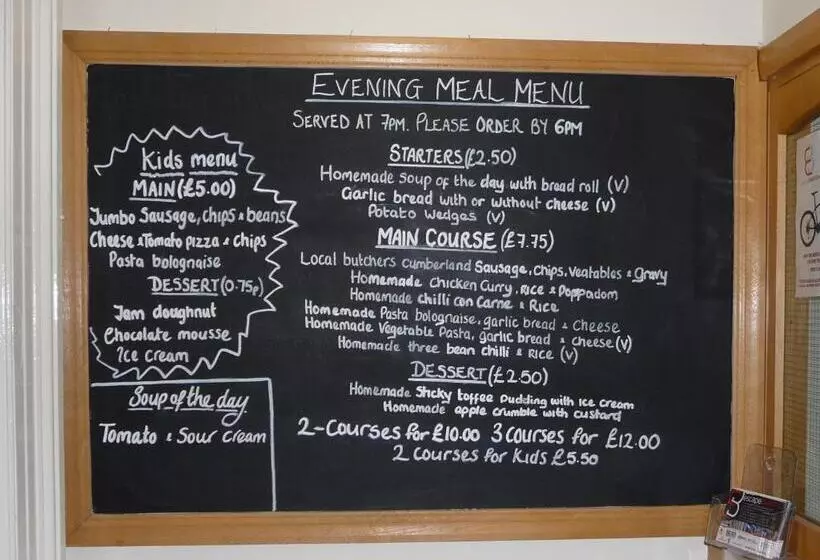 EVENING MEAL MENU
SERVED AT 7PM. PLEASE ORDER BY 6PM
STARTERS (£2.50)
Homemade soup of the day with bread roll (v)
Garlic bread with or without cheese (v)
Potato wedges (v)
MAIN COURSE (£7.75)
Local butchers cumberland Sausage, chips, Veatables & gravy
Homemade chicken Curry, Rice & Poppadom
Homemade chilli con Carne & Rice
Homemade Pasta bolognaise, garlic bread & Cheese
Homemade Vegetable Pasta, garlic bread & cheese (v)
Homemade three bean chilli & Rice (v)
DESSERT (£2.50)
Homemade Sticky toffee Pudding with Ice cream
Homemade apple crumble with custard
2-Courses for £10.00 3 courses for £12.00
2 courses for Kids £5.50
Kids menu
MAIN (£5.00)
Jumbo Sausage, chips & beans
Cheese & Tomato pizza & chips
Pasta bolognaise
DESSERT (0.75p)
Jam doughnut
Chocolate mousse
Ice cream
Soup of the day
Tomato & Sour cream
escape